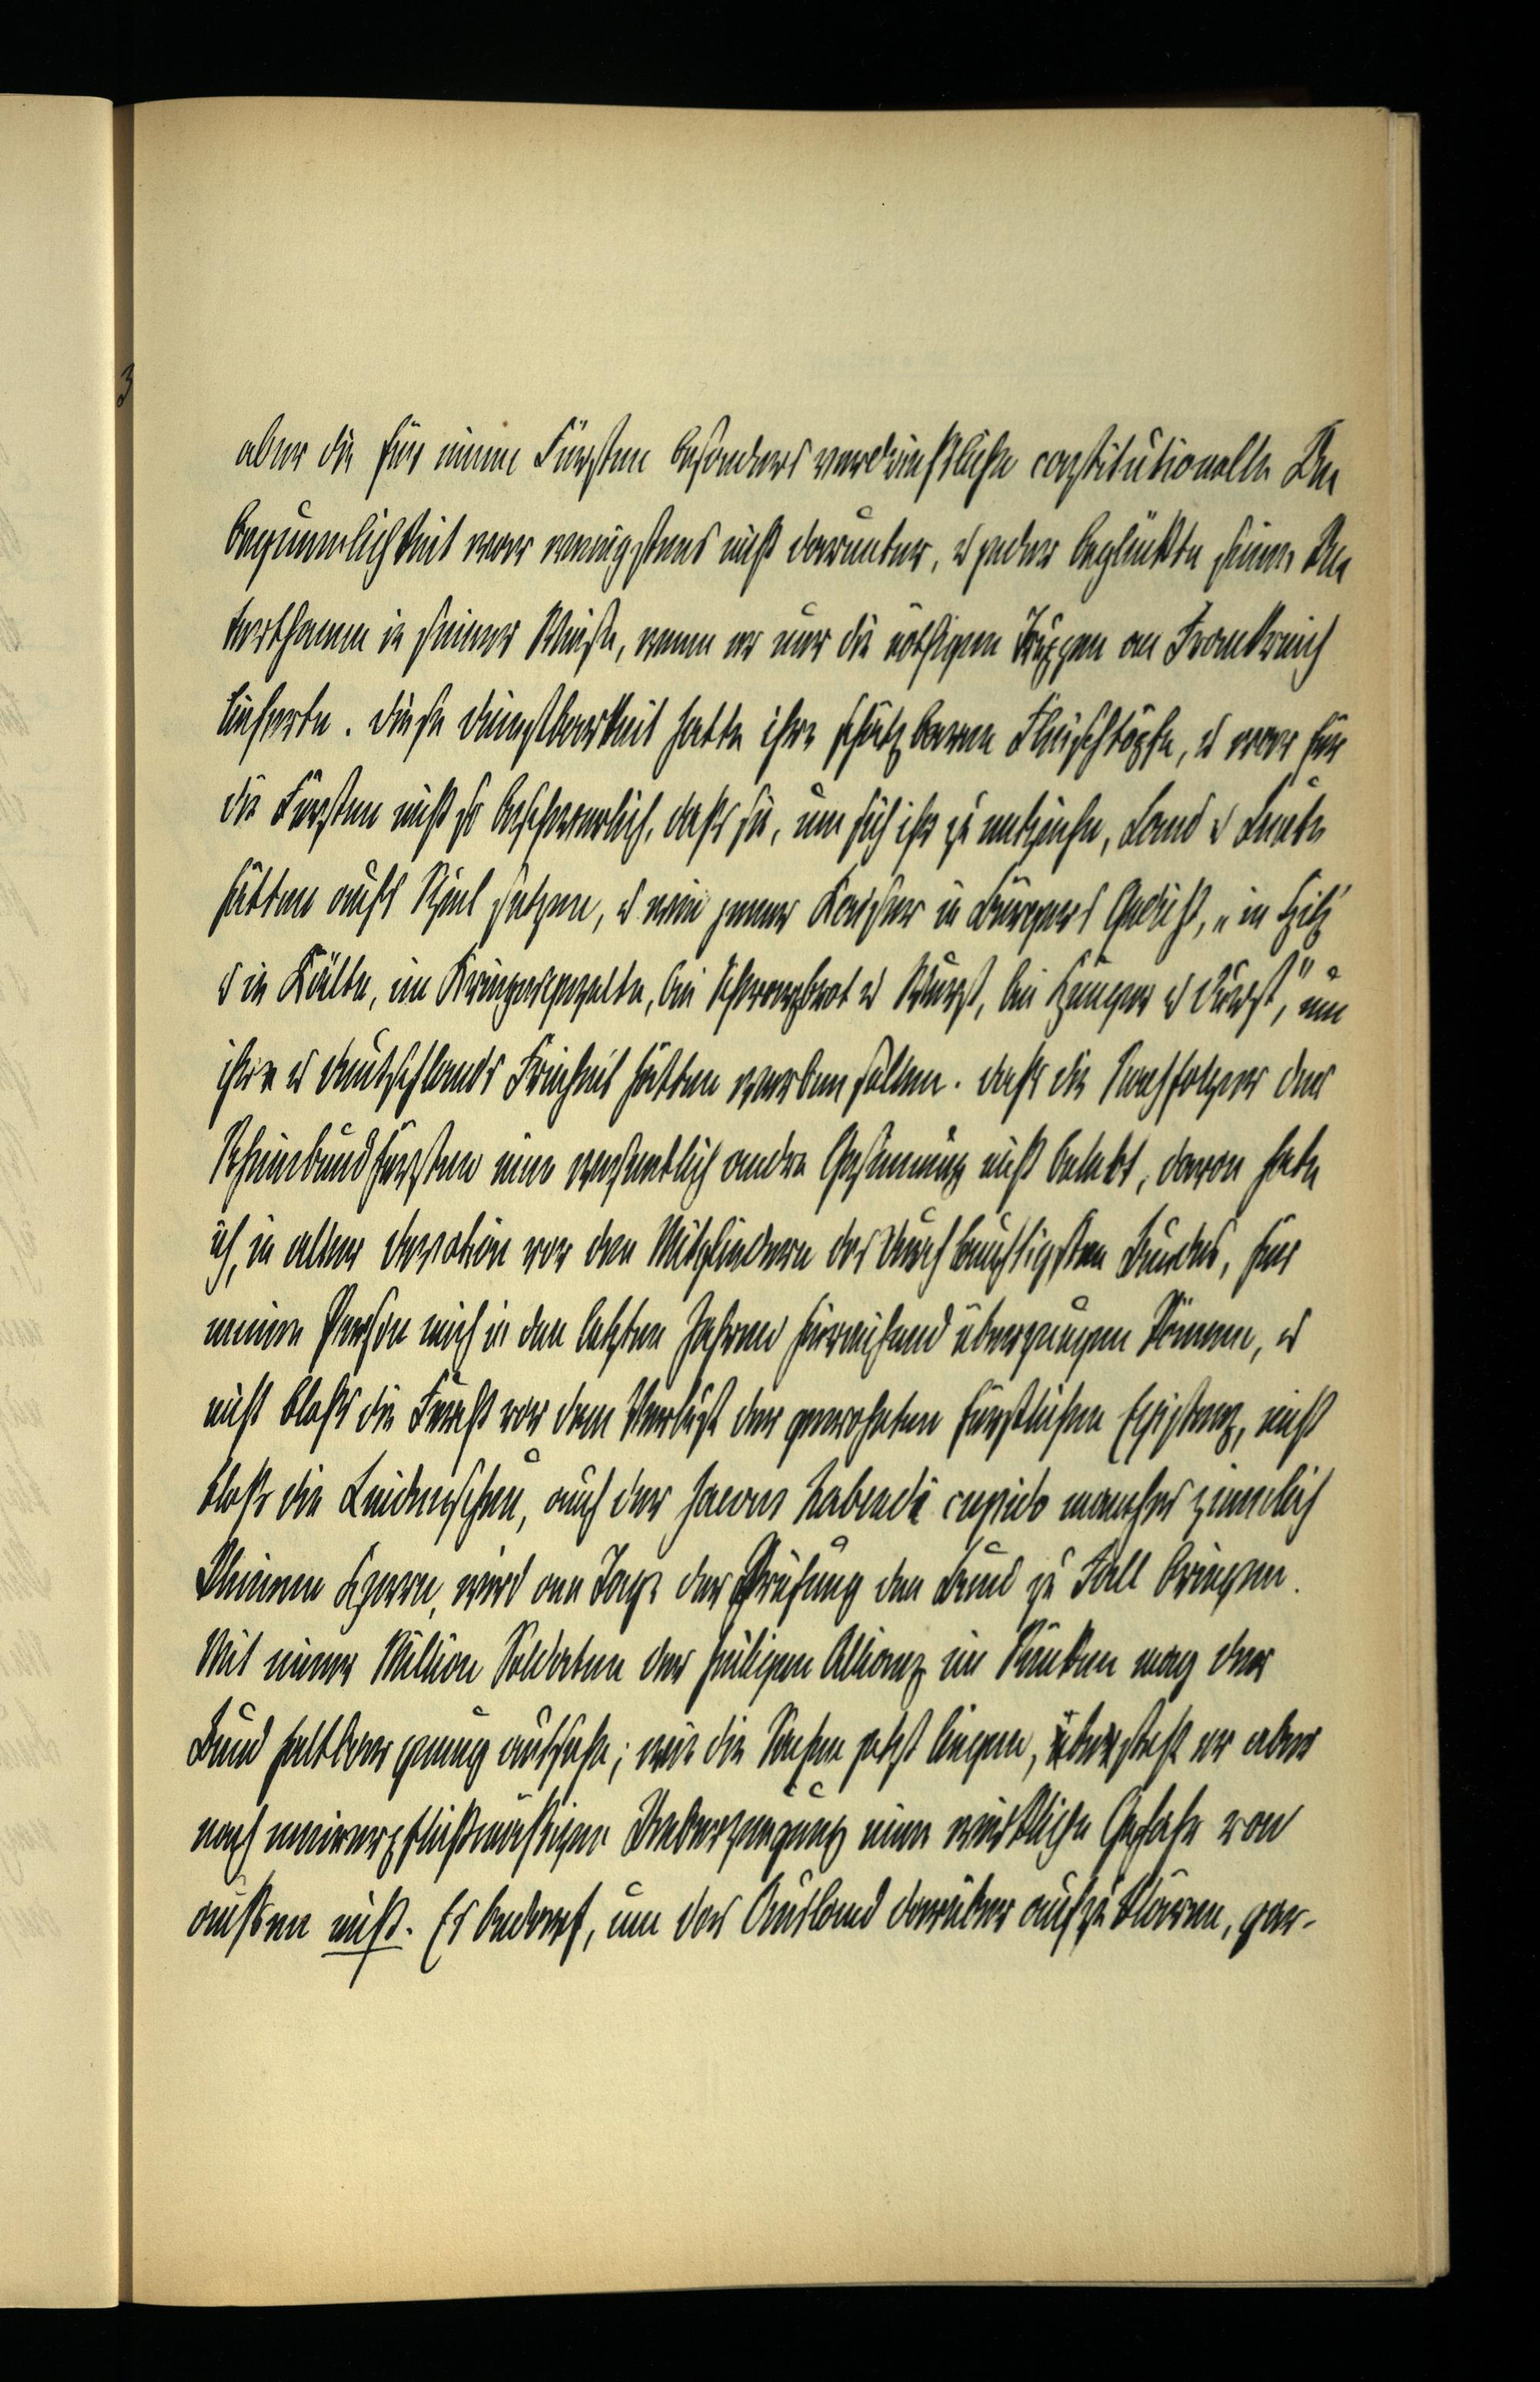 3
aber die für einen Fürsten besonders verdrießliche constitutionelle Un
bequemlichkeit war wenigstens nicht darunter, u jeder beglückte seine Un
terthanen in seiner Weise, wenn er nur die nöthigen Truppen an Frankreich
lieferte. Diese Dienstbarkeit hatte ihre schätzbaren Fleischtöpfe, u war für
die Fürsten nicht so beschwerlich, daß sie, um sich ihr zu entziehn, Land u Leute
hätten aufs Spiel setzen, u wie jener Kaiser in Bürgers Gedicht, „in Hitz
u in Kälte, im Kriegesgezelte, bei Schwarzbrot u Wurst, bei Hunger u Durst," um
ihre u Deutschlands Freiheit hätten werben sollen. Daß die Nachfolger der
Rheinbundfürsten eine wesentlich andre Gesinnung nicht belebt, davon habe
ich, in aller Devotion vor den Mitgliedern des Durchlauchtigsten Bundes, für
meine Person mich in den letzten Jahren hinreichend überzeugen können, u
nicht bloß die Furcht vor dem Verlust der gewohnten fürstlichen Existenz, nicht
bloß die Leidenschen, auch der habendi cupido mancher ziemlich
kleinen Herrn, wird am Tage der Prüfung den Bund zu Fall bringen.
Mit einer Million Soldaten der heiligen Allianz im Rücken mag der
Bund haltbar genug aussehn; wie die Sachen jetzt liegen, übersteht er aber
nach meiner pflichtmäßigen Ueberzeugung eine wirkliche Gefahr von
außen nicht. Es bedarf, um das Ausland darüber aufzuklären, gar-